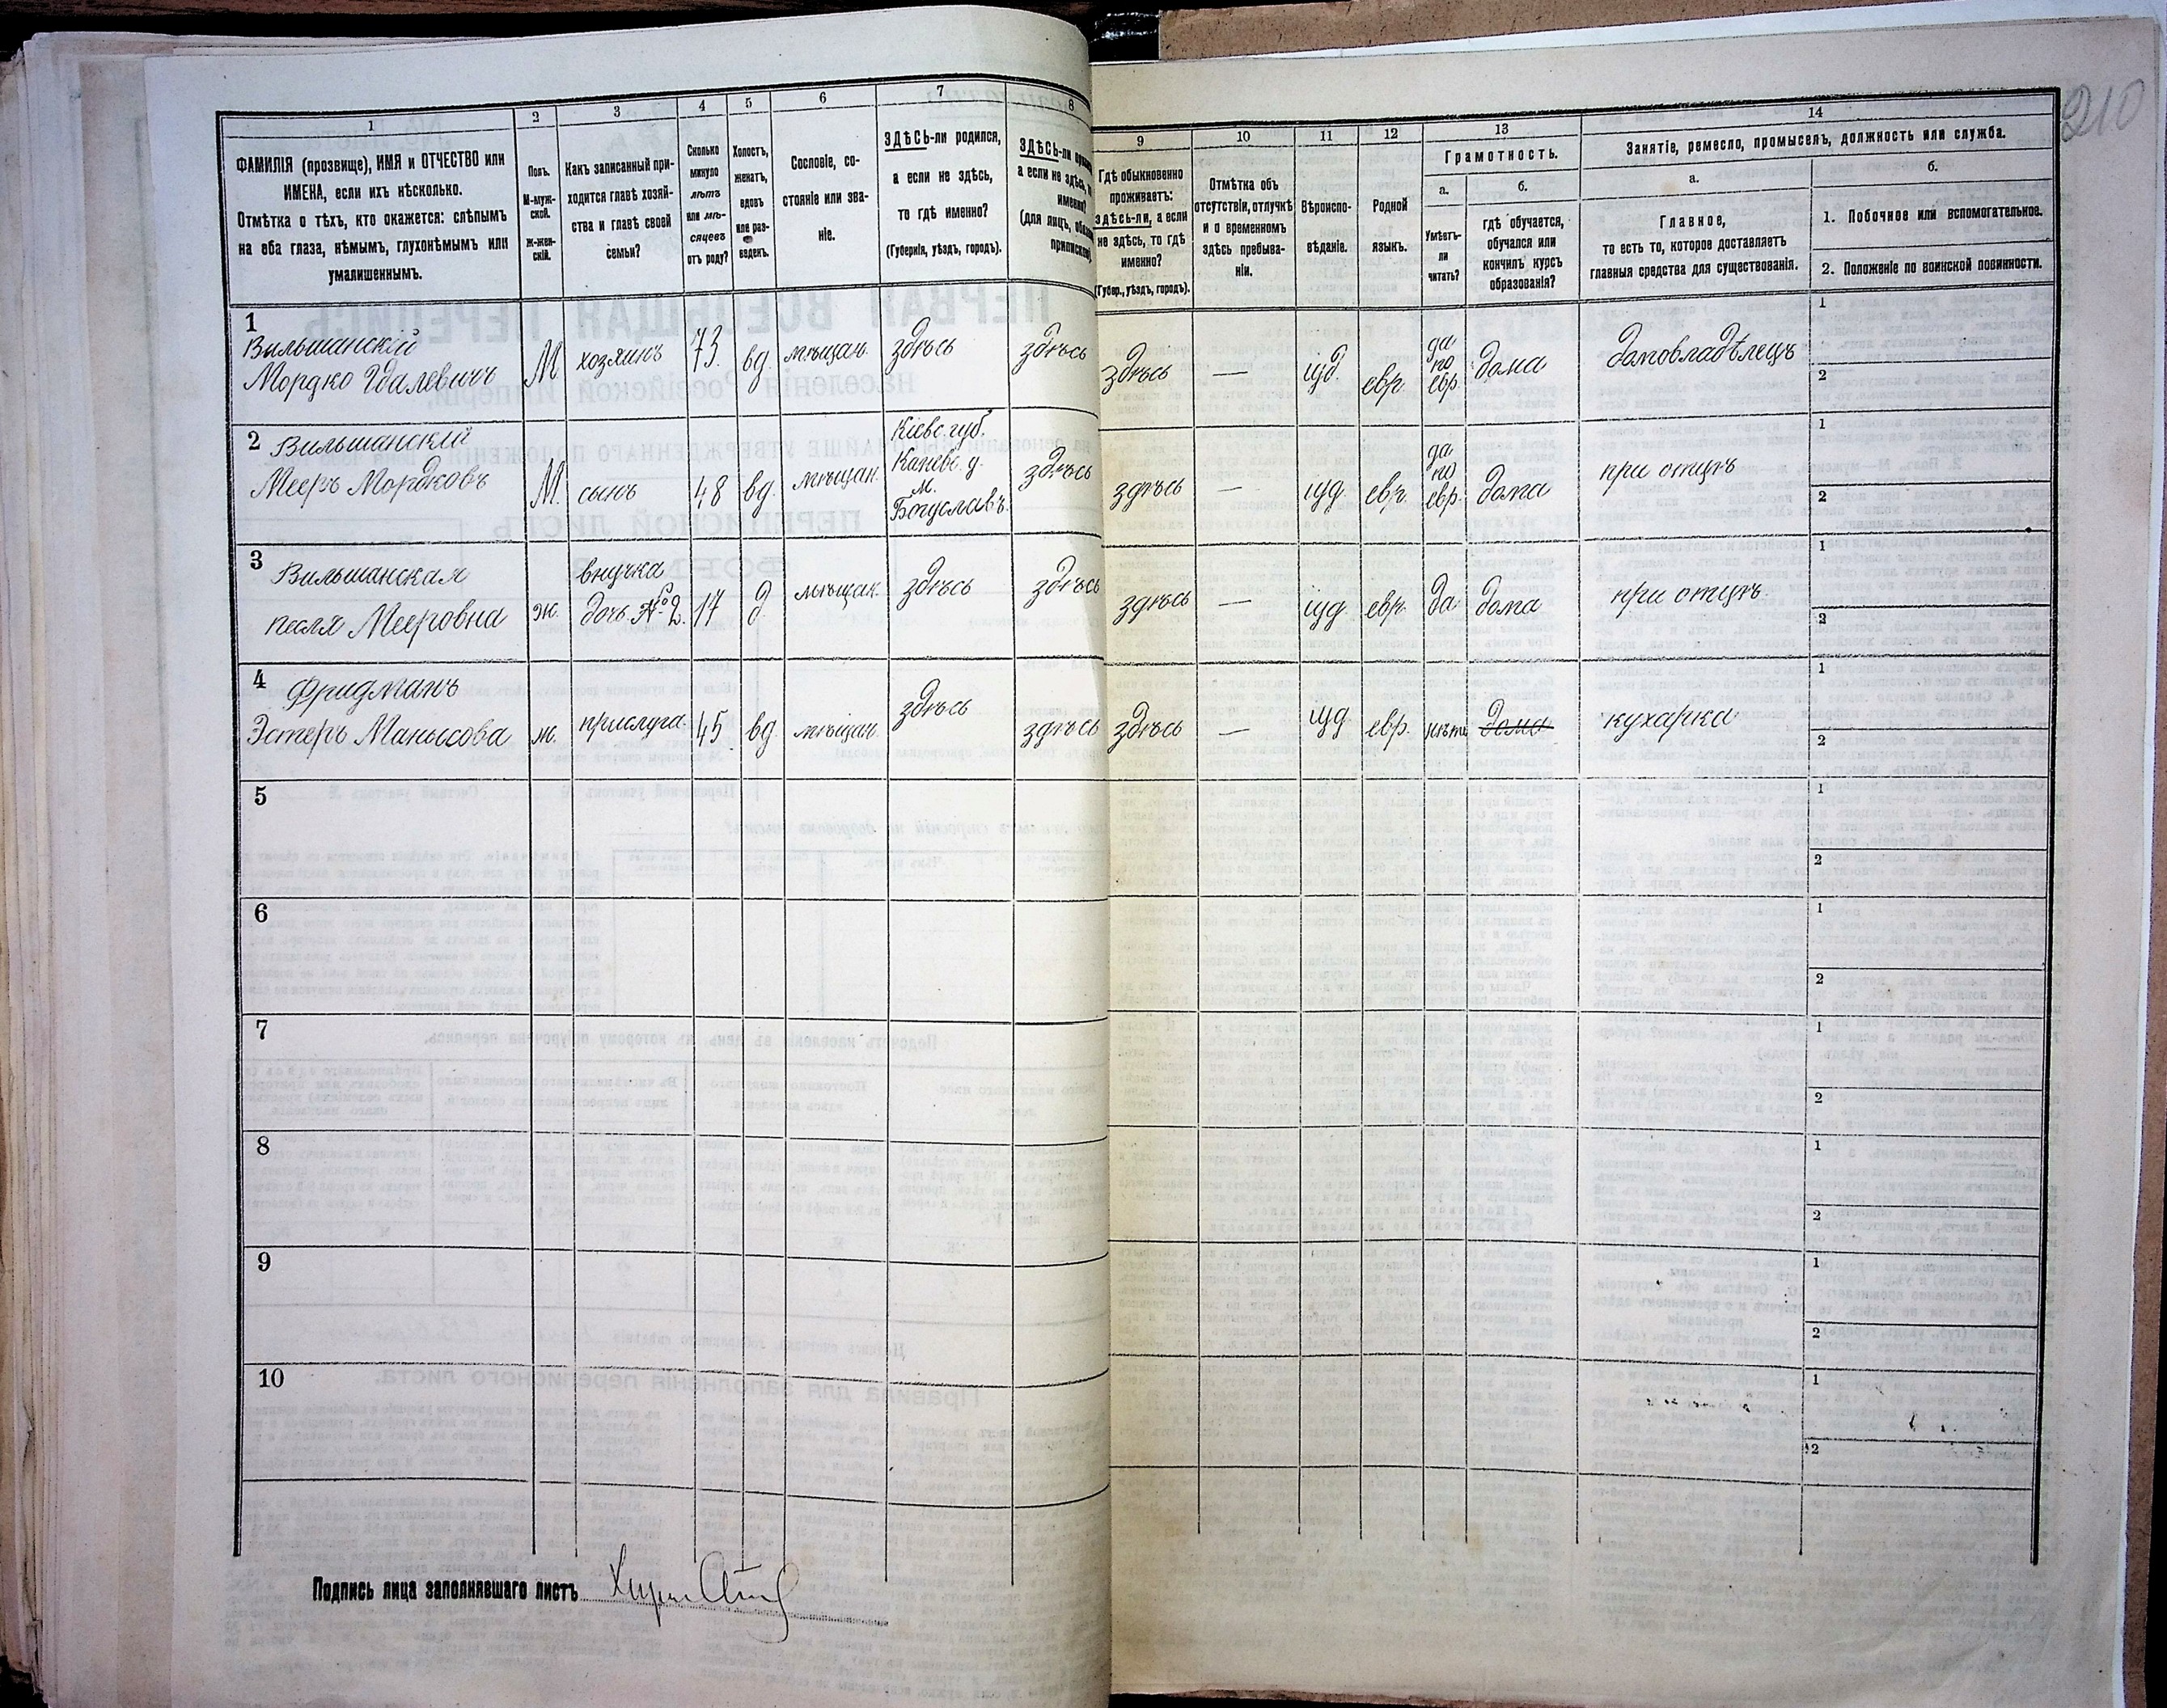 210
1
2
3
4
5
6
7
8
ФАМИЛІЯ (прозвище), ИМЯ и ОТЧЕСТВО или
ИМЕНА, если ихъ нѣсколько.
Отмѣтка о тѣхъ, кто окажется: слѣпымъ
на оба глаза, нѣмымъ, глухонѣмымъ или
умалишеннымъ.
Полъ.
М-муж-
ской.
Ж-жен-
скій.
Какъ записанный при-
ходится главѣ хозяй-
ства и главѣ своей
семьи?
Сколько
минуло
лѣтъ
или мѣ-
сяцевъ
отъ роду?
Холостъ,
женатъ,
вдовъ
или раз-
веденъ.
Сословіе, со-
стояніе или зва-
ніе.
ЗДѢСЬ-ли родился,
а если не здѣсь,
то гдѣ именно?
(Губернія, уѣздъ, городъ).
ЗДѢСЬ-ли
а если не здѣсь,
именно?
(для лицъ,
9
10
11
12
13
14
Гдѣ обыкновенно
проживаетъ:
здѣсь-ли, а если
не здѣсь, то гдѣ
именно?
(Губер., уѣздъ, городъ).
Отмѣтка объ
отсутствіи, отлучкѣ
и о временномъ
здѣсь пребыва-
ніи.
Вѣроиспо-
вѣданіе.
Родной
языкъ.
Грамотность.
а.
б.
Умѣетъ-
ли
читать?
гдѣ обучается,
обучался или
кончилъ курсъ
образованія?
Занятіе, ремесло, промыселъ, должность или служба.
а.
б.
Главное,
то есть то, которое доставляетъ
главныя средства для существованія.
1. Побочное или вспомогательное.
2. Положеніе по воинской повинности.
1
Вильшанскій
Мордко Гдалевичъ
М
хозяинъ
73.
вд.
мѣщан.
здѣсь
здѣсь
здѣсь
—
іуд.
евр.
да
по
евр.
дома
домовладѣлецъ
1
2
2 Вильшанскій
Мееръ Мордковъ
М.
сынъ
48
вд.
мѣщан.
Кіевс. губ.
Канівс. у.
м.
Богуславъ.
здѣсь
здѣсь
—
іуд.
евр.
да
по
евр.
дома
при отцѣ
1
2
3
Вильшанская
Песля Мееровна
ж.
внучка
дочь № 2.
17
д.
мѣщан.
здѣсь
здѣсь
здѣсь
—
іуд.
евр.
да
дома
при отцѣ.
1
2
4
Фридманъ
Эстеръ Маньисова
ж.
прислуга.
45
вд.
мѣщан.
здѣсь
здѣсь
здѣсь
—
іуд.
евр.
нѣтъ
дома
кухарка
1
2
5
1
2
6
1
2
7
1
2
8
1
2
9
1
2
10
1
2
Подпись лица заполнявшаго листъ